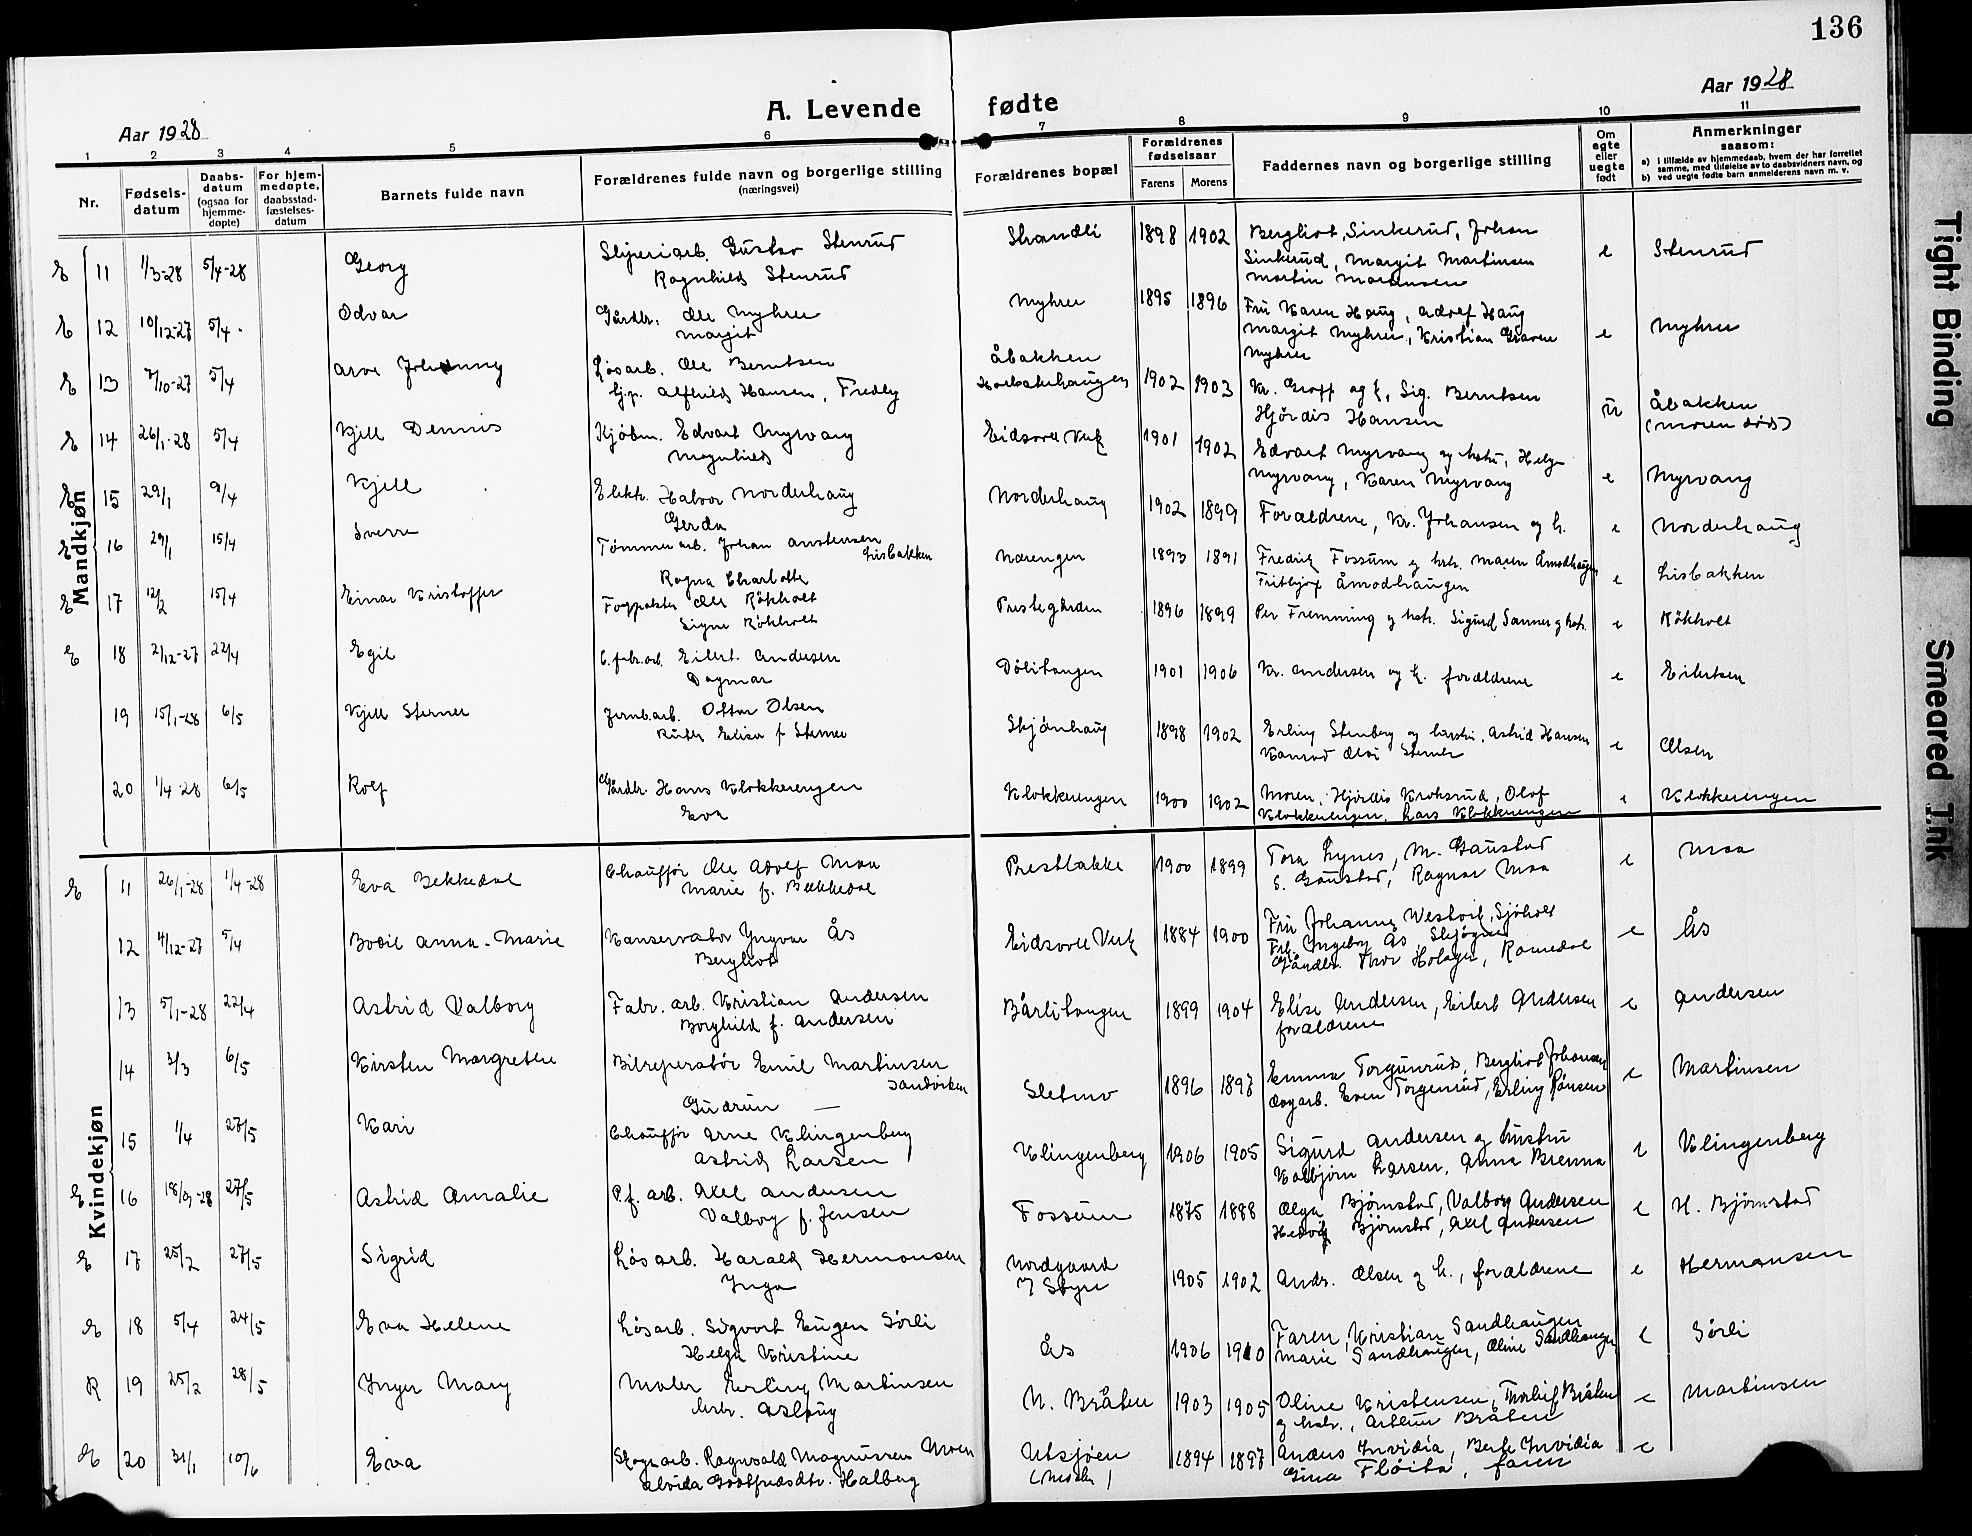 136
Aar 1928
A. Levende fødte
Aar 1928
1 2 3 4 5 6 7 8 9 10 11
Nr.
Fødsels-
datum
Daabs-
datum
(ogsaa for
hjemme-
døpte)
For hjem-
medøpte,
daabsstad-
fæstelses-
datum
Barnets fulde navn
Forældrenes fulde navn og borgerlige stilling
(næringsvei)
Forældrenes bopæl
Forældrenes
fødselsaar
Farens Morens
Faddernes navn og borgerlige stilling
Om
egte
eller
uegte
født
Anmerkninger
saasom:
a) i tilfælde av hjemmedaab, hvem der har forrettet
samme, med tilføielse av to daabsvidners navn, og
b) ved uegte fødte barn anmelderens navn m. v.
Mandkjøn
E 11 1/3-28 5/4-28 Georg Sliperiarb. Gustav Stenrud Strandli 1898 1902 Bergliot Sinkerud, Johan e Stenrud
Ragnhild Stenrud Sinkerud, Margit Martinsen
Martin Martinsen
E 12 10/12-27 5/4 - Odvar Gårdbr. Ole Myhrer Myhrer 1895 1896 Fru Karen Haug, Adolf Haug e Myhrer
Margit Margit Myhrer, Kristian
Myhrer
E 13 7/10-27 5/4 Arve Johnny Løsarb. Ole Berntsen Åbakken 1902 1903 Kr. Groff og h, Sig. Berntsen u Åbakken
hj.p. Alfhild Hansen, Fredly Hjørdis Hansen (moren død)
E 14 26/1-28 5/4 Kjell Dennis Kjøbm. Edvart Myrvang Eidsvoll Verk 1901 1902 Edvart Myrvang og hstr, Helge e Myrvang
Magnhild Myrvang, Karen Myrvang
E 15 29/1 9/4 Kjell Elekk. Halvor Norderhaug Norderhaug 1902 1899 Forældrene, Kr. Johansen og h. e Norderhaug
Gerda
E 16 29/1 15/4 Sverre Tømmerarb. Johan Anstensen Lisbakken Nærengen 1893 1891 Fredrik Fossum og hstr. Maren Åmodthaugen e Lisbakken
Ragna Charlotte Frithjof Åmodthaugen
E 17 12/2 15/4 Einar Kristoffer Ole Røkholt Prestegården 1896 1899 Per Fremming og hstr. Sigurd Sanner og hstr. e Røkholt
Signe Røkholt
E 18 2/12-27 22/4 Egil C.fabr.arb. Eilert Andersen Dølitangen 1901 1906 Kr. Andersen og h. forældrene e Eilertsen
Dagmar
19 15/1-28 6/5 Kjell Sterner Jernb.arb. Ottar Olsen Skjønhaug 1898 1902 Erling Stenberg og hustru, Astrid Hansen e Olsen
Ruth Elisa f Sterner
20 1/4-28 6/5 Rolf Gårdbr. Hans Klokkerengen Klokkerengen 1900 1902 Moren, Hjørdis Kroksrud, Olaf e Klokkerengen
Eva Klokkerengen, Lars Klokkerengen
Kvindekjøn
E 11 26/1-28 1/4-28 Eva Bekkedal Chauffør Ole Adolf Moa Prestløkke 1900 1899 Tora Lynes, M. Gaustad e Moa
Marie f. Bekkedal S. Gaustad, Ragnar Moa
12 4/12-27 5/4 Bodil Anna-Marie Konservator Yngvar Ås Eidsvoll Verk 1884 1900 Fru Johanne Westvik, Sjøholt e Ås
Bergliot Frk Ingeborg Ås, Skjøgne
Gårdbr. Thor Holager, Romedal
13 5/1-28 22/4 Astrid Valborg Fabr. arb. Kristian Andersen Bårlitangen 1899 1904 Elise Andersen, Eilert Andersen e Andersen
Borghild f. Andersen forældrene
14 3/3 6/5 Kirsten Margrethe Bilreperatør Emil Martinsen Sletmo 1896 1897 Emma Torgunrud, Bergliot Johansen e Martinsen
Sandviken dagarb. Even Torgenrud, Erling Rønsen
Gudrun —
15 1/4 27/5 Kari Chauffør Arne Klingenberg Klingenberg 1906 1905 Sigurd Andersen og hustru e Klingenberg
Astrid Larsen Kolbjørn Larsen, Anna Brenna
E 16 18/01-28 27/5 Astrid Amalie P.f. arb. Axel Andersen Fossum 1875 1888 Olga Bjørnstad, Valborg Andersen e H. Bjørnstad
Valborg f. Jensen Hedvig Bjørnstad, Axel Andersen
E 17 25/2 27/5 Sigrid Løsarb. Harald Hermansen Nordgaard 1905 1902 Andr. Olsen og h., forældrene e Hermansen
Inga I Styri
E 18 5/4 24/5 Eva Helene Løsarb. Sigvart Eugen Sørli Ås 1906 1910 Faren, Kristian Sandhaugen e Sørli
Helga Kristine Marie Sandhaugen, Oline Sandhaugen
R 19 25/2 28/5 Inger Mary Maler Erling Martinsen N. Bråten 1903 1905 Oline Kristensen, Thorleif Bråten e Martinsen
hstr. Aslaug og hstr., Arthur Bråten
E 20 31/1 10/6 Eva Skogsarb. Ragnvald Magnussen Moen Utsjøen 1894 1897 Anders Invidia, Berte Invidia e
Alvida Gotfredsdtr. Halberg Gina Fløita, faren
Tight Binding
Smeared Ink